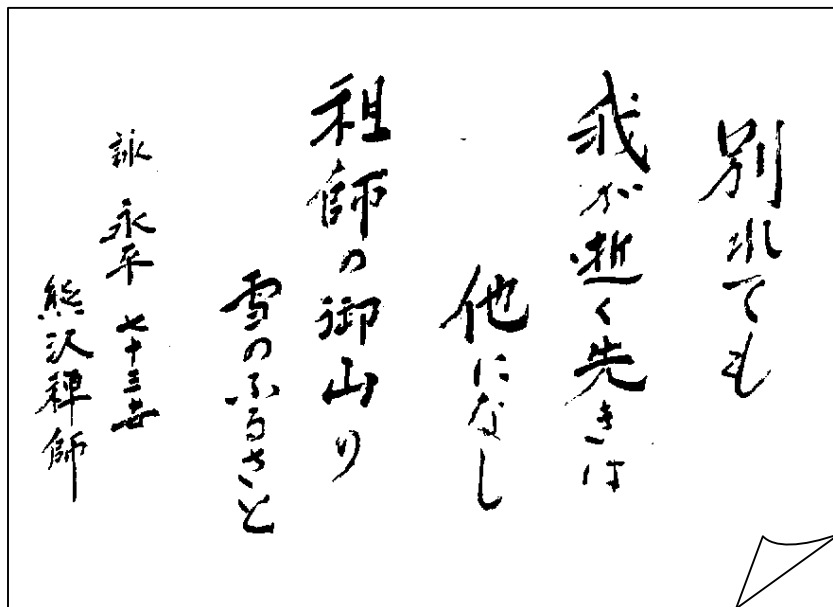 別れても
我が逝く先きは
他になし
祖師の御山の
雪のふるさと
詠 永平 七十三世
熊沢禅師